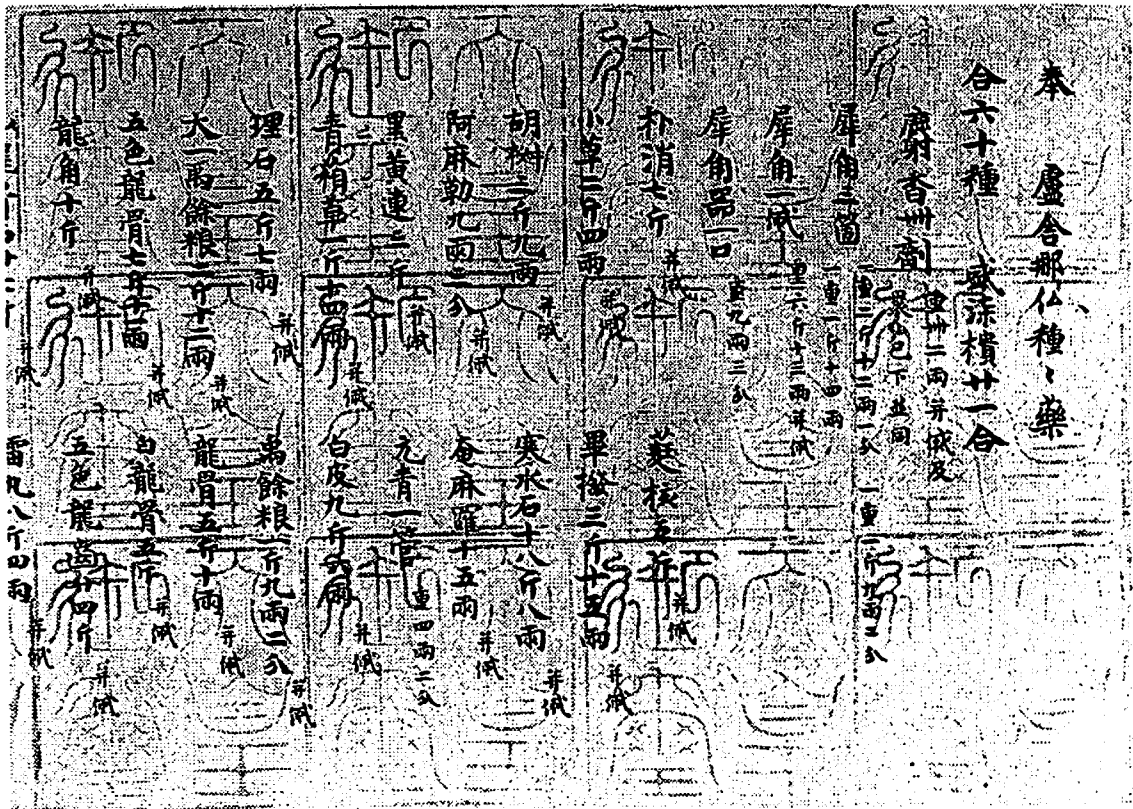 奉　盧舍那仏種〻藥
合六十種　盛漆樻廿一合
麝香卌劑　重卌二兩并帒及
裹　下並同
犀角三箇　一重一斤十四兩
一重二斤十二兩一分　一重一斤九兩二分
犀角一帒　重六斤十三兩并帒
犀角器一口　重九兩三分
朴消七斤　并帒　蕤核五斤　并帒
小草二斤四兩　并帒　畢撥三斤十五兩　并帒
胡椒三斤九兩　并帒　寒水石十八斤八兩　并帒
阿麻勒九兩三分　并帒　奄麻羅十五兩　并帒
黑黃連三斤　并帒　元青一　重四兩二分
青葙草一斤十四兩　并帒　白皮九斤　兩　并帒
理石五斤七兩　并帒　禹餘粮一斤九兩二分　并帒
大一禹餘粮二斤十二兩　并帒　龍骨五斤十兩　并帒
五色龍骨七斤十一兩　并帒　白龍骨五斤　并帒
龍角十斤　并帒　五色龍齒廿四斤　并帒
雷丸八斤四兩　并帒